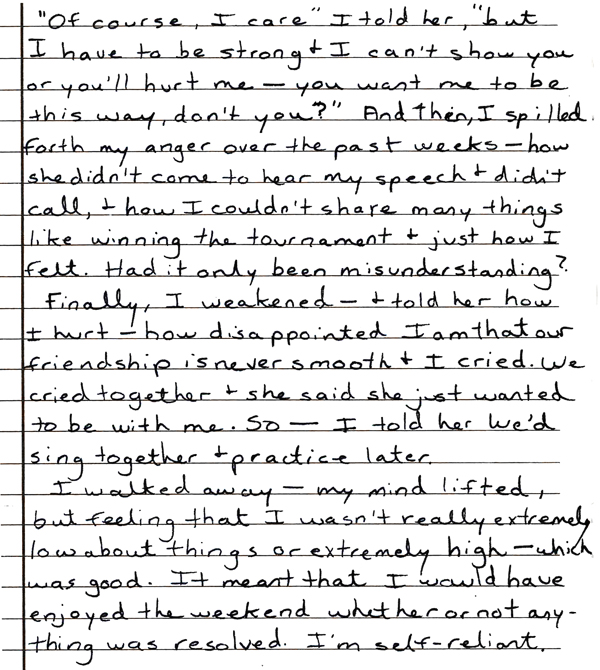 "Of course, I care" I told her, "but
I have to be strong + I can't show you
or you'll hurt me — you want me to be
this way, don't you?" And then, I spilled
forth my anger over the past weeks — how
she didn't come to hear my speech + didn't
call, + how I couldn't share many things
like winning the tournament + just how I
felt. Had it only been misunderstanding?
Finally, I weakened — + told her how
I hurt — how disappointed I am that our
friendship is never smooth + I cried. We
cried together + she said she just wanted
to be with me. So — I told her we'd
sing together + practice later.
I walked away — my mind lifted,
but feeling that I wasn't really extremely
low about things or extremely high — which
was good. It meant that I would have
enjoyed the weekend whether or not any-
thing was resolved. I'm self-reliant.